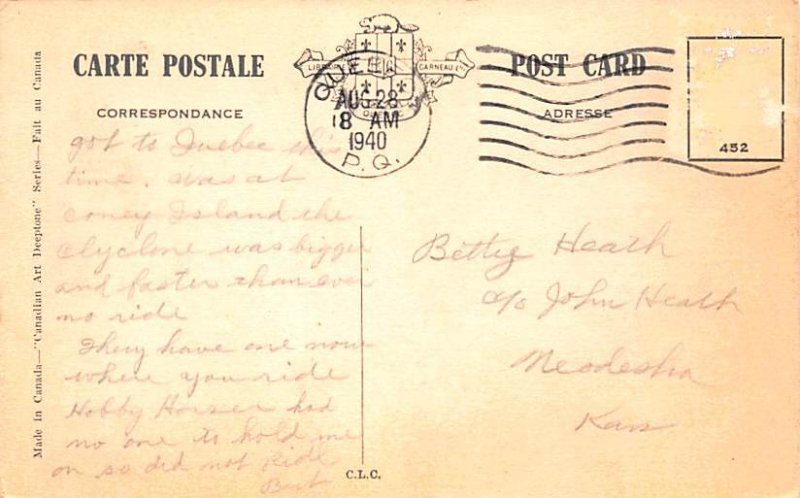 CARTE POSTALE
POST CARD
CORRESPONDANCE
ADRESSE
LIBRAIRIE GARNEAU Ltée
QUEBEC
AUG 28
8 AM
1940
P.Q.
452
got to Quebec this
time. was at
Coney Island the
Clyclone was bigger
and faster than ever
no ride
They have one now
where you ride
Hobby Horses had
no one to hold me
on so did not Ride
Bert
Bettie Heath
c/o John Heath
Neodesha
Kans
Made in Canada—"Canadian Art Deeptone" Series—Fait au Canada
C.L.C.